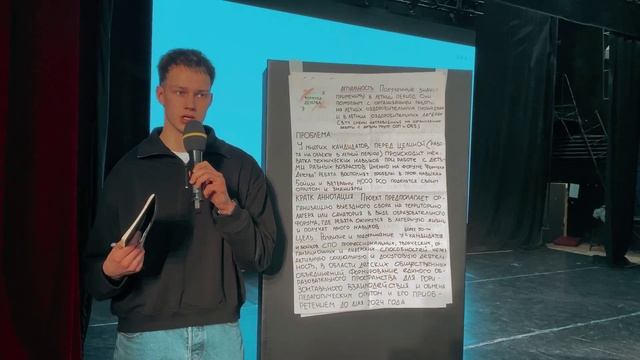 ФОРМУЛА
ДЕТСТВА
АКТУАЛЬНОСТЬ ПОЛУЧЕННЫЕ ЗНАНИЯ
ПРИМЕНИМЫ В ЛЕТНИЙ ПЕРИОД. ОНИ
ПОМОГАЮТ С ОРГАНИЗАЦИЕЙ РАБОТЫ
НА ЛЕТНИХ ОЗДОРОВИТЕЛЬНЫХ ПЛОЩАДКАХ
И В ЛЕТНИХ ОЗДОРОВИТЕЛЬНЫХ ЛАГЕРЯХ
РАБОТЫ С ДЕТЬМИ
ПРОБЛЕМА:
У МНОГИХ КАНДИДАТОВ ПЕРЕД ЦЕЛИНОЙ (РАБО-
ТА НА ОБЪЕКТЕ В ЛЕТНИЙ ПЕРИОД) ПРОИСХОДИТ НЕХ-
ВАТКА ТЕХНИЧЕСКИХ НАВЫКОВ ПРИ РАБОТЕ С ДЕТЬ-
МИ РАЗНЫХ ВОЗРАСТОВ ИМЕННО НА ФОРУМЕ "ФОРМУЛА
ДЕТСТВА" РЕБЯТА ВОСПОЛНЯТ ПРОБЕЛЫ В ПРОФ. НАВЫКАХ
БОЙЦЫ И ВЕТЕРАНЫ ЧООО РСО ПОДЕЛЯТСЯ СВОИМ
ОПЫТОМ И ЗНАНИЯМИ
КРАТК АННОТАЦИЯ ПРОЕКТ ПРЕДПОЛАГАЕТ ОР-
ГАНИЗАЦИЮ ВЫЕЗДНОГО СБОРА НА ТЕРРИТОРИЮ
ЛАГЕРЯ ИЛИ САНАТОРИЯ В ВИДЕ ОБРАЗОВАТЕЛЬНОГО
ФОРУМА, ГДЕ РЕБЯТА ОКУНУТСЯ В ЛАГЕРНУЮ ЖИЗНЬ
И ПОЛУЧАТ МНОГО НАВЫКОВ
ЦЕЛЬ И ПОДДЕРЖАНИЕ У КАНДИДАТОВ
И БОЙЦОВ СПО ПРОФЕССИОНАЛЬНЫХ, ТВОРЧЕСКИХ, ОР-
ГАНИЗАЦИОННЫХ И ЛИДЕРСКИХ СПОСОБНОСТЕЙ ЧЕРЕЗ
АКТИВНУЮ СОЦИАЛЬНУЮ И ДОСУГОВУЮ ДЕЯТЕЛЬ-
НОСТЬ, В ОБЛАСТИ ДЕТСКИХ ОБЩЕСТВЕННЫХ
ОБЪЕДИНЕНИЙ ФОРМИРОВАНИЕ ЕДИНОГО ОБ-
РАЗОВАТЕЛЬНОГО ПРОСТРАНСТВА ДЛЯ ГОРИ-
ЗОНТАЛЬНОГО ВЗАИМОДЕЙСТВИЯ И ОБМЕНА
ПЕДАГОГИЧЕСКИМ ОПЫТОМ И ЕГО ПРИОБ-
РЕТЕНИЕМ ДО МАЯ 2024 ГОДА